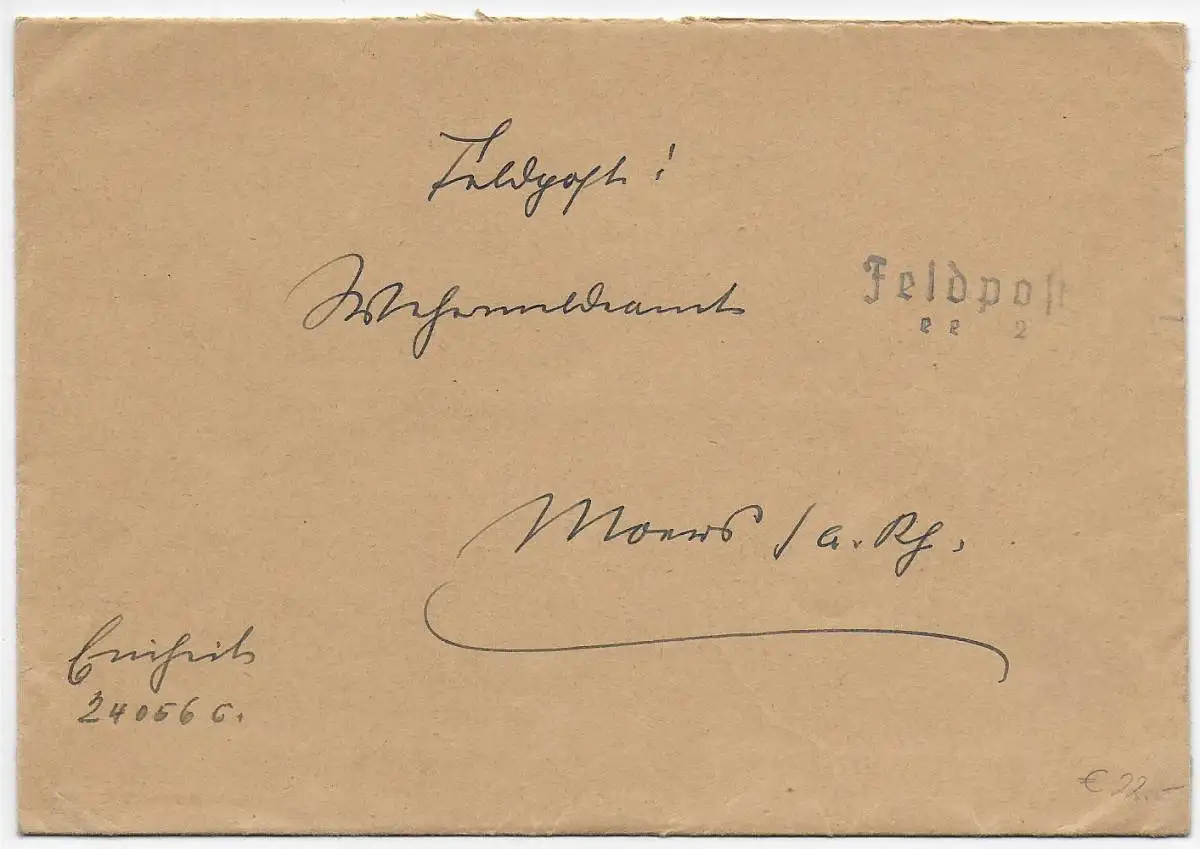 Feldpost!
Wehrmeldeamt
Feldpost
e e 2
Moers / a. Rh.
Einheit
24056 C.
€ 22.-